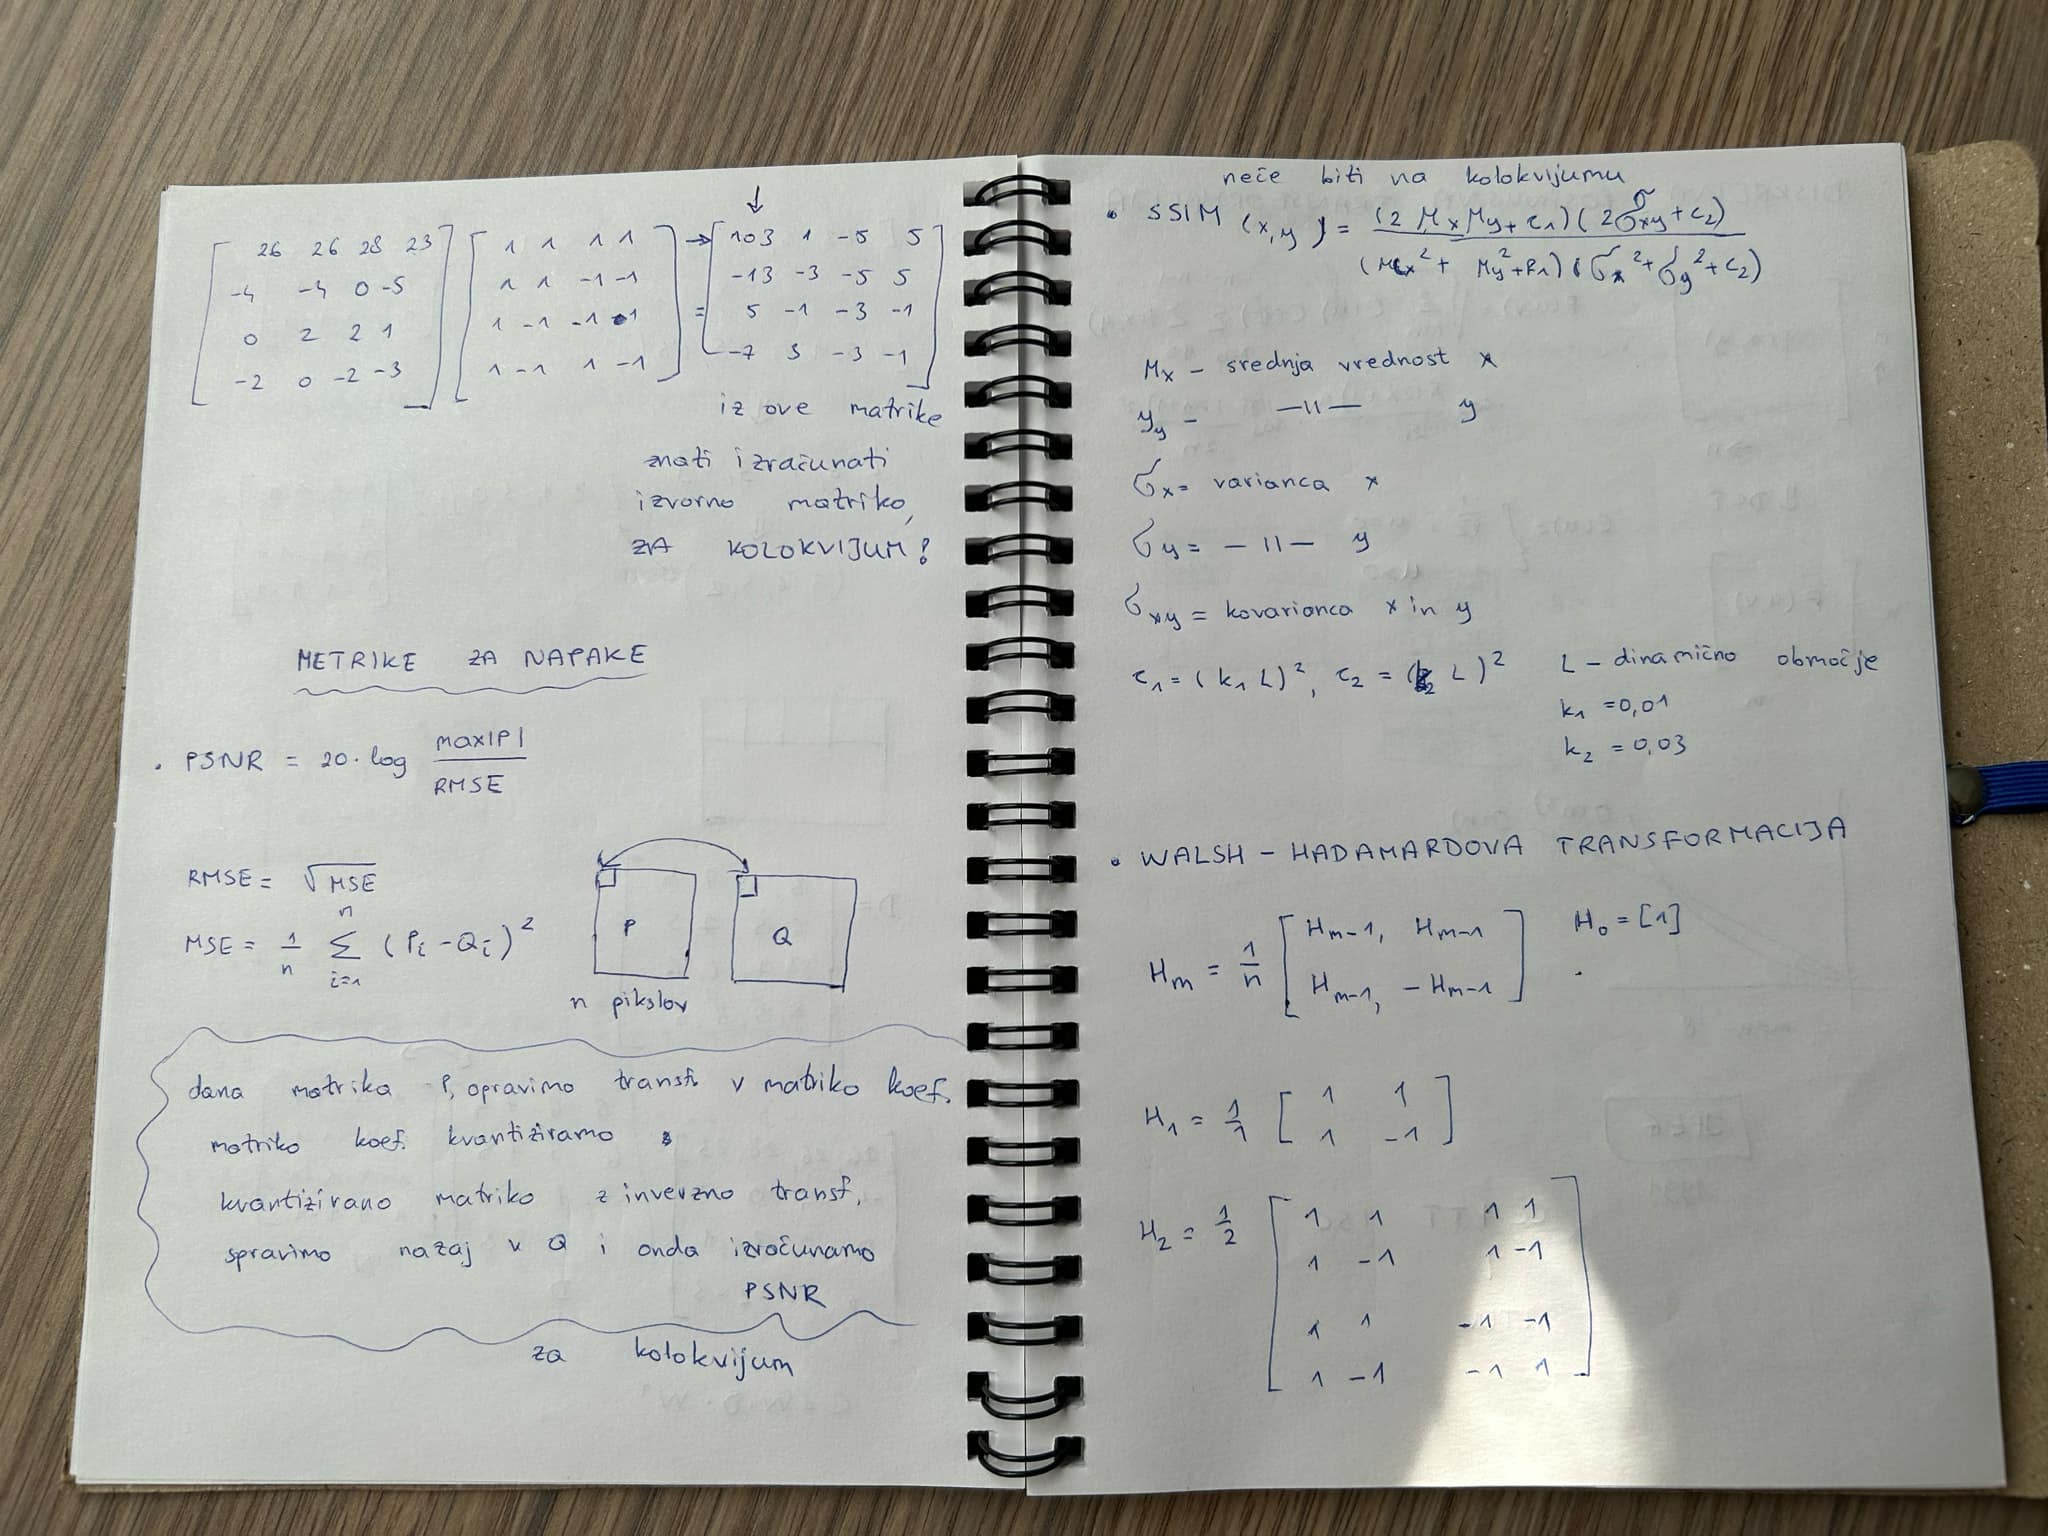 [26 26 28 23] [1 1 1 1] → [103 1 -5 5]
[-4 -4 0 -5] [1 1 -1 -1] [-13 -3 -5 5]
[0 2 2 1] [1 -1 -1 1] = [5 -1 -3 -1]
[-2 0 -2 -3] [1 -1 1 -1] [-7 3 -3 -1]
iz ove matrike
znati izračunati
izvorno matriko,
ZA KOLOKVIJUM!
METRIKE ZA NAPAKE
• PSNR = 20 · log max|P| / RMSE
RMSE = √MSE
MSE = 1/n Σ i=1 n (Pi - Qi)²
P Q
n pikslov
dana matrika P, opravimo transf. v matriko koef.
matriko koef. kvantiziramo
kvantizirano matriko z inverzno transf.
spravimo nazaj v Q i onda izračunamo
PSNR
za kolokvijum
neče biti na kolokvijumu
• SSIM (x,y) = (2 Mx My + c1)(2 σxy + c2) / (Mx² + My² + c1)(σx² + σy² + c2)
Mx - srednja vrednost x
yy - -11- y
σx = varianca x
σy = -11- y
σxy = kovarianca x in y
c1 = (k1 L)², c2 = (k2 L)² L - dinamično območje
k1 = 0,01
k2 = 0,03
• WALSH - HADAMARDOVA TRANSFORMACIJA
Hm = 1/n [Hm-1, Hm-1 H0 = [1]
Hm-1, -Hm-1]
H1 = 1/1 [1 1
1 -1]
H2 = 1/2 [1 1 1 1
1 -1 1 -1
1 1 -1 -1
1 -1 -1 1]